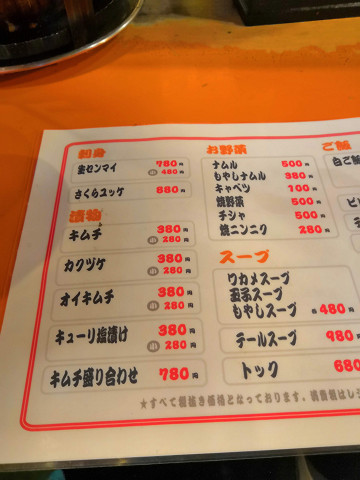 刺身
生センマイ 780円
小 480円
さくらユッケ 880円
漬物
キムチ 380円
小 280円
カクッケ 380円
小 280円
オイキムチ 380円
小 280円
キューリ塩漬け 380円
小 280円
キムチ盛り合わせ 780円
お野菜
ナムル 500円
もやしナムル 380円
キャベツ 100円
焼野菜 500円
チシャ 500円
焼ニンニク 280円
スープ
ワカメスープ
玉子スープ
もやしスープ 各480円
テールスープ 980円
トック 680
ご飯
白ご飯
★すべて税抜き価格となっております。